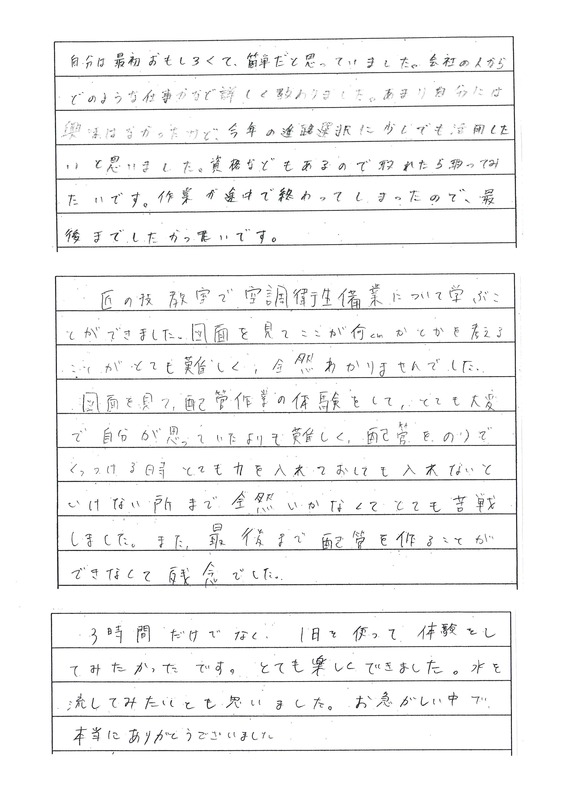 自分は最初おもしろくて、簡単だと思っていました。会社の人から
どのような仕事かなど詳しく教わりました。あまり自分には
興味はなかったけど、今年の進路選択に少しでも活用した
いと思いました。資格などもあるので取れたら取ってみ
たいです。作業が途中で終わってしまったので、最
後までしたかっ思いです。
匠の技教室で空調衛生備業について学ぶこ
とができました。図面を見てここが何cmかとかを考える
ことがとても難しく、全然わかりませんでした。
図面を見て、配管作業の体験をして、とても大変
で自分が思っていたよりも難しく、配管をのりで
くっつける時とても力を入れておしても入れないと
いけない所まで全然いかなくてとても苦戦
しました。また、最後まで配管を作ることが
できなくて残念でした。
3時間だけでなく、1日を使って体験をし
てみたかったです。とても楽しくできました。水を
流してみたいとも思いました。お急がしい中で
本当にありがとうございました